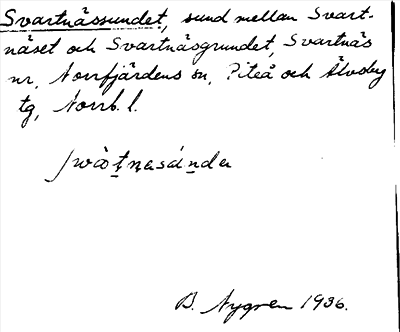 Svartnässundet, sund mellan Svart-
näset och Svartnäsgrundet, Svartnäs
nr, Norrfjärdens sn, Piteå och Älvsby
tg, Norrb. l.
B. Nygren 1936.